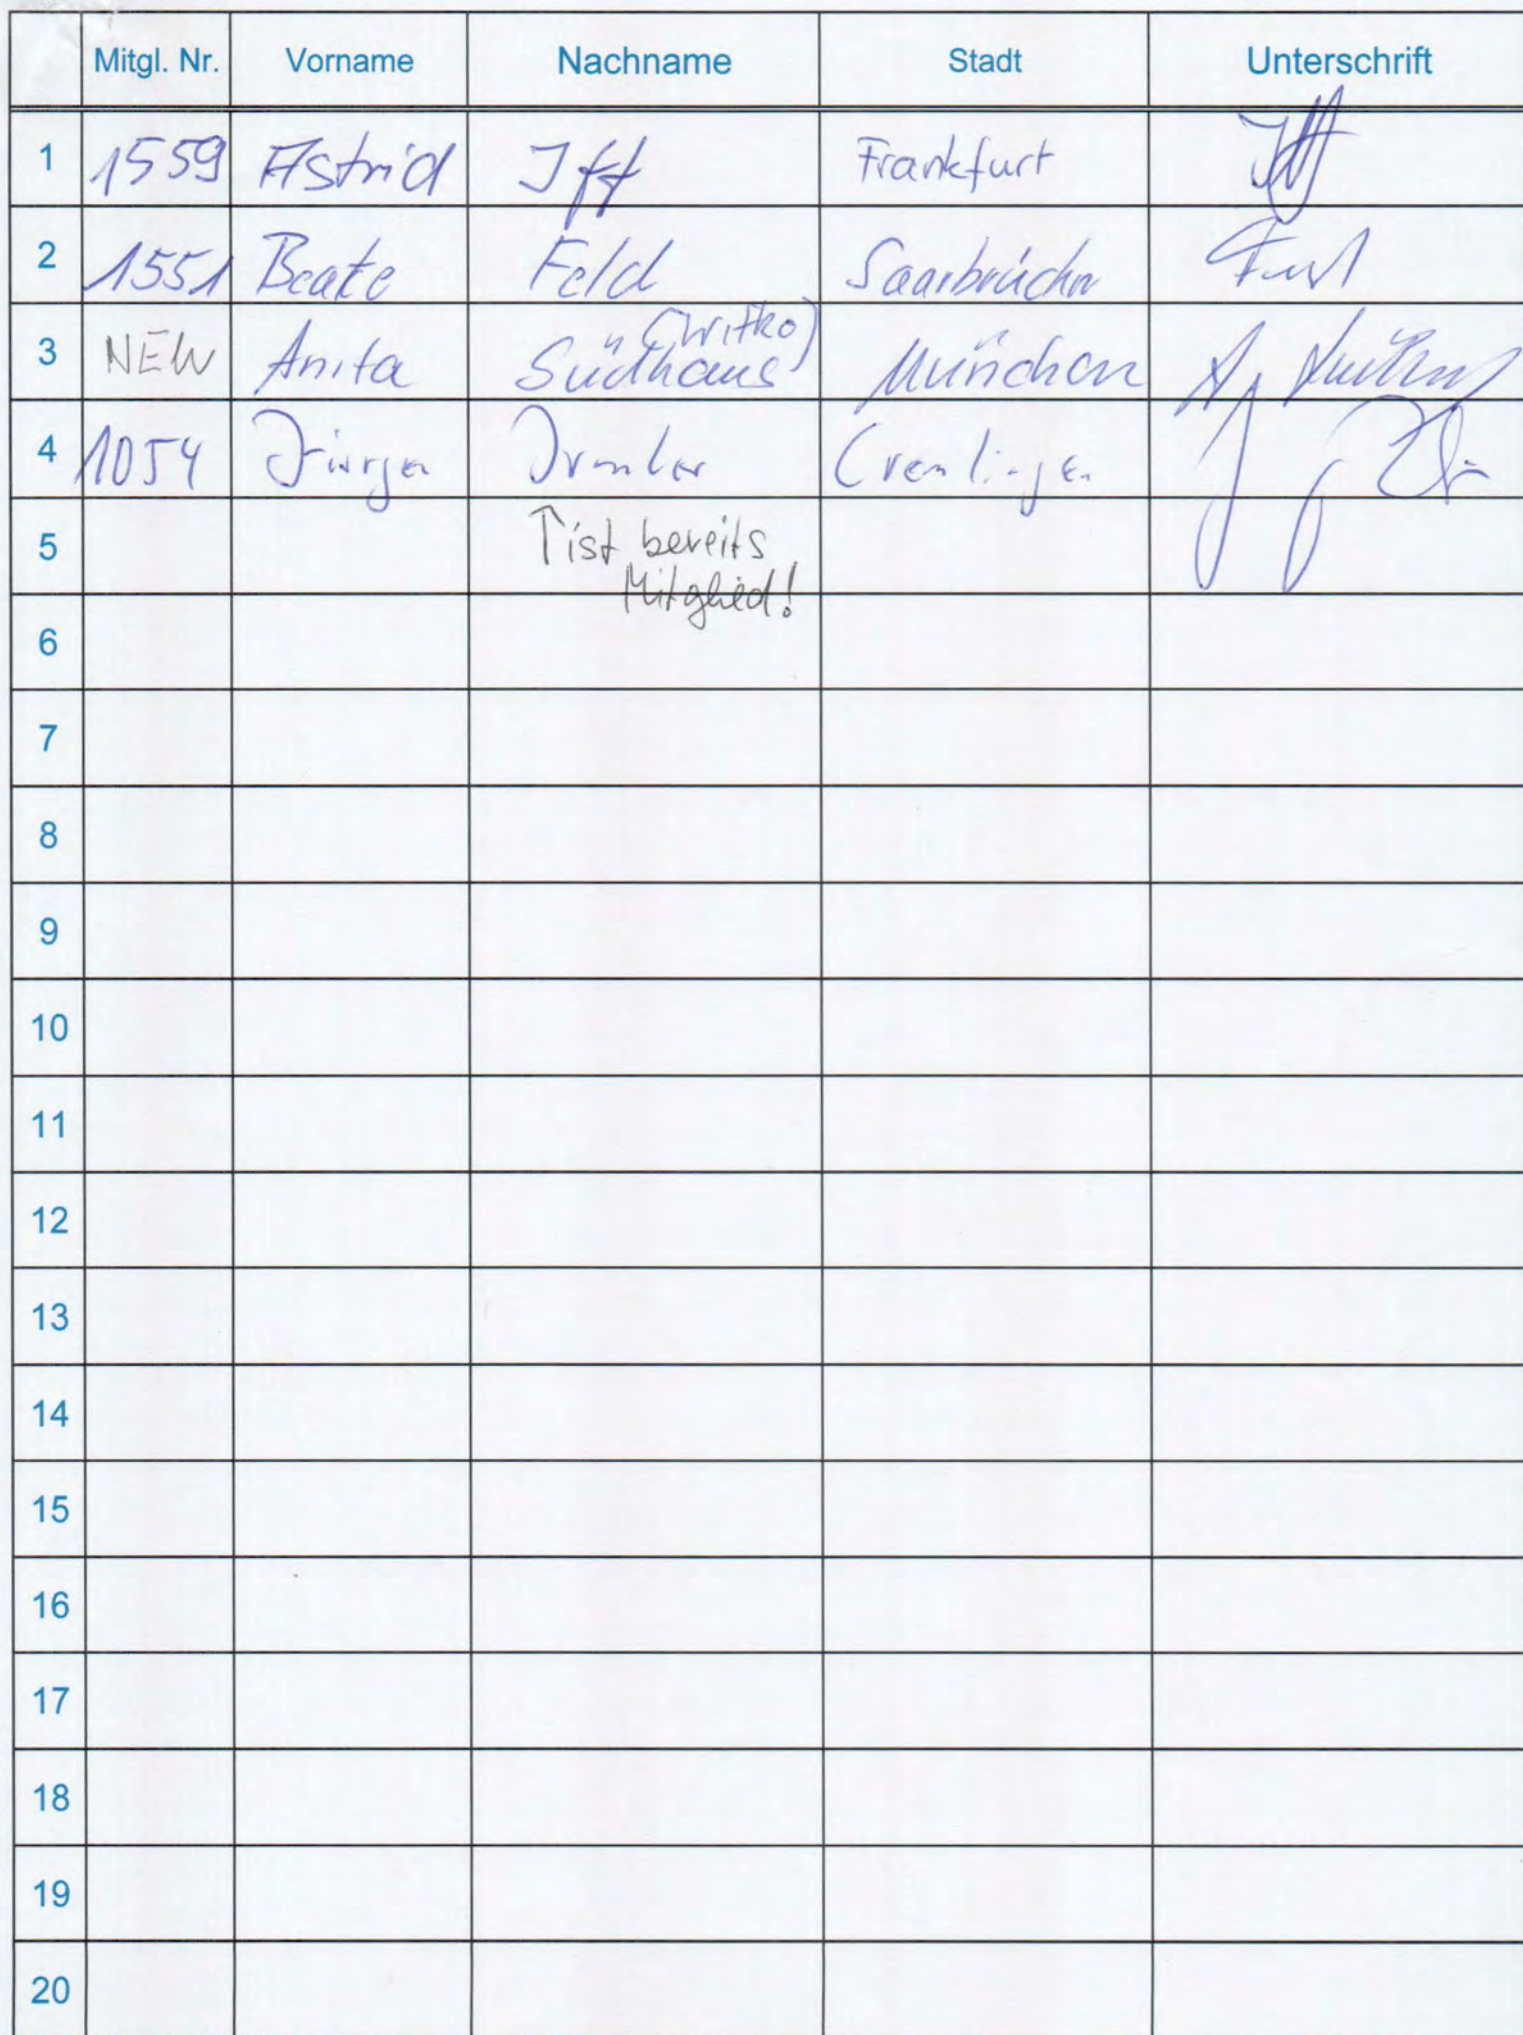 Mitgl. Nr. Vorname Nachname Stadt Unterschrift
1 1559 Astrid Iff Frankfurt Iff
2 1551 Beate Feld Saarbrücken
(Witko)
3 NEW Anita Südhaus München A.
4 1054 Jürgen Irmler Cremlingen
5 ↑ ist bereits
Mitglied!
6
7
8
9
10
11
12
13
14
15
16
17
18
19
20